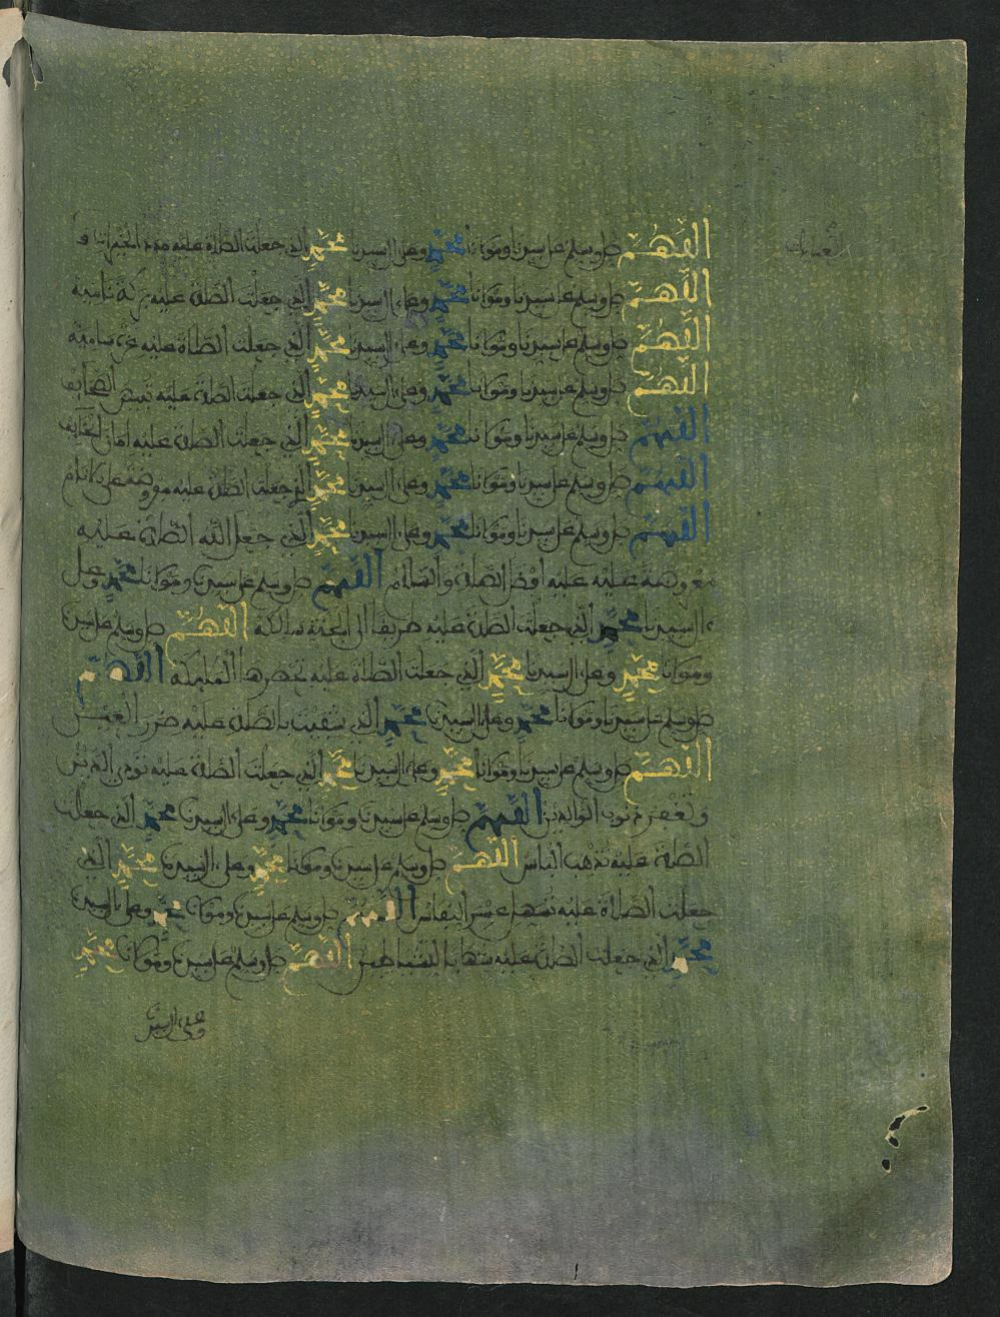 اللهم صل وسلم على سيدنا ومولانا محمد وعلى ال سيدنا محمد الذي جعلت الصلاة عليه
اللهم صل وسلم على سيدنا ومولانا محمد وعلى ءال سيدنا محمد الذي جعلت الصلاة عليه بركة نامية
اللهم صل وسلم على سيدنا ومولانا محمد وعلى ءال سيدنا محمد الذي جعلت الصلاة عليه سامية
اللهم صل وسلم على سيدنا ومولانا محمد وعلى ءال سيدنا محمد الذي جعلت الصلاة عليه تبيض
اللهم صل وسلم على سيدنا ومولانا محمد وعلى ءال سيدنا محمد الذي جعلت الصلاة عليه امان
اللهم صل وسلم على سيدنا ومولانا محمد وعلى ءال سيدنا محمد الذي جعلت الصلاة عليه
اللهم صل وسلم على سيدنا ومولانا محمد وعلى ءال سيدنا محمد الذي جعل الله الصلاة عليه
معروضة عليه عليه افضل الصلاة والسلام اللهم صل وسلم على سيدنا ومولانا محمد وعلى
ءال سيدنا محمد الذي جعلت الصلاة عليه طريقا الى الجنة سالكة اللهم صل وسلم على سيدنا
ومولانا محمد وعلى ءال سيدنا محمد الذي جعلت الصلاة عليه تحضرها الملئكة اللهم
صل وسلم على سيدنا ومولانا محمد وعلى ءال سيدنا محمد الذي بالصلاة عليه ضرر
اللهم صل وسلم على سيدنا ومولانا محمد وعلى ءال سيدنا محمد الذي جعلت الصلاة عليه تؤدي الدين
وتغفر ذنوب الوالدين اللهم صل وسلم على سيدنا ومولانا محمد وعلى ءال سيدنا محمد الذي جعلت
الصلاة عليه تذهب الباس اللهم صل وسلم على سيدنا ومولانا محمد وعلى ءال سيدنا محمد الذي
جعلت الصلاة عليه تسهل عسر النفاس اللهم صل وسلم على سيدنا ومولانا محمد وعلى ءال سيدنا
محمد الذي جعلت الصلاة عليه اللهم صل وسلم على سيدنا ومولانا محمد
وعلى ءال سيدنا